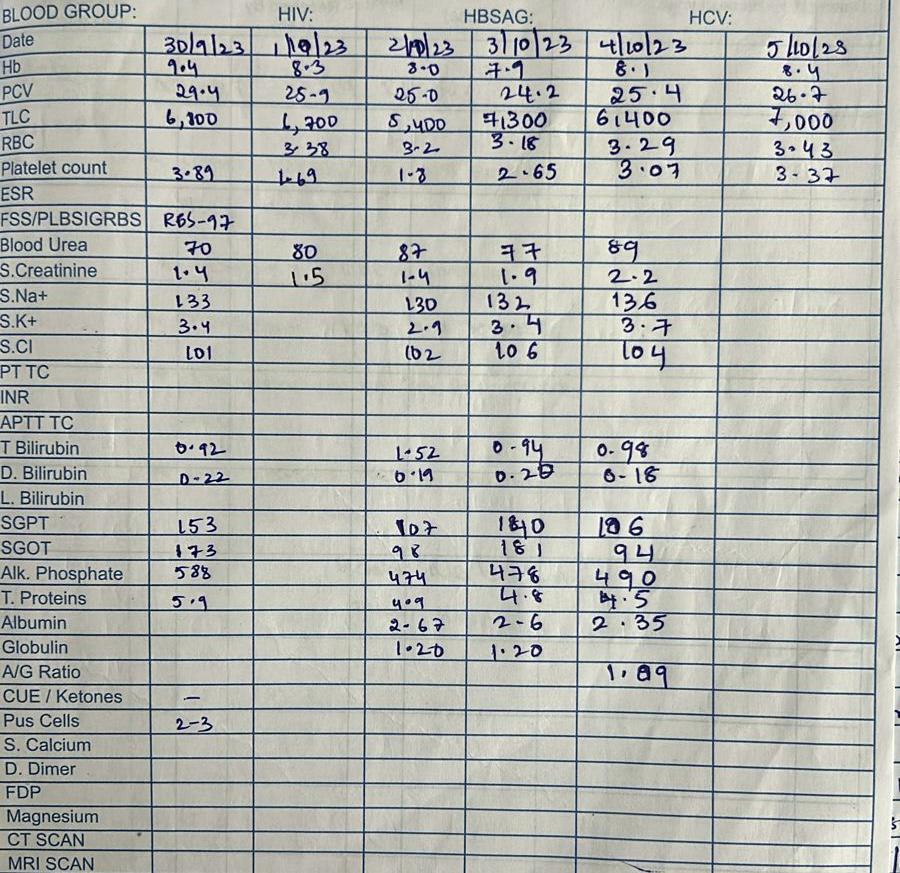 BLOOD GROUP: HIV: HBSAG: HCV:
Date 30/9/23 1/10/23 2/10/23 3/10/23 4/10/23 5/10/23
Hb 9.4 8.3 8.0 7.9 8.1 8.4
PCV 29.4 25.9 25.0 24.2 25.4 26.7
TLC 6,800 6,700 5,400 7,300 6,400 7,000
RBC 3.38 3.2 3.18 3.29 3.43
Platelet count 3.89 1.69 1.8 2.65 3.07 3.37
ESR
FSS/PLBSIGRBS RBS-97
Blood Urea 70 80 87 77 89
S.Creatinine 1.4 1.5 1.4 1.9 2.2
S.Na+ 133 130 132 136
S.K+ 3.4 2.9 3.4 3.7
S.Cl 101 102 106 104
PT TC
INR
APTT TC
T Bilirubin 0.92 1.52 0.94 0.98
D. Bilirubin 0.22 0.19 0.20 0.18
L. Bilirubin
SGPT 153 107
SGOT 173 98 181 94
Alk. Phosphate 588 474 478 490
T. Proteins 5.9 4.9 4.8 4.5
Albumin 2.67 2.6 2.35
Globulin 1.20 1.20
A/G Ratio
CUE / Ketones –
Pus Cells 2-3
S. Calcium
D. Dimer
FDP
Magnesium
CT SCAN
MRI SCAN